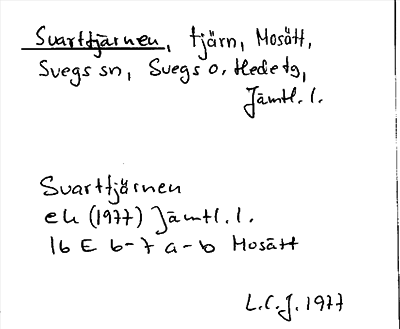 Svarttjärnen, tjärn, Mosätt,
Svegs sn, Svegs o. Hede tg,
Jämtl. l.
Svarttjärnen
ek (1977) Jämtl. l.
16 E 6-7 a-b Mosätt
L.C.J. 1977